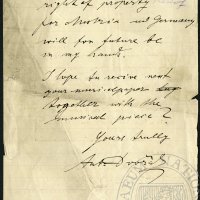 right of property
for Austria und Germany
will for future be
in my hand.
I hope to recive next
your music-paper
together with the
musical piece?
Yours trully
Antonín Dvořák